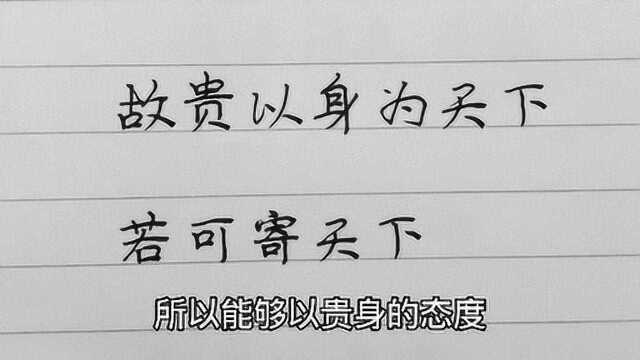 故贵以身为天下
若可寄天下
所以能够以贵身的态度